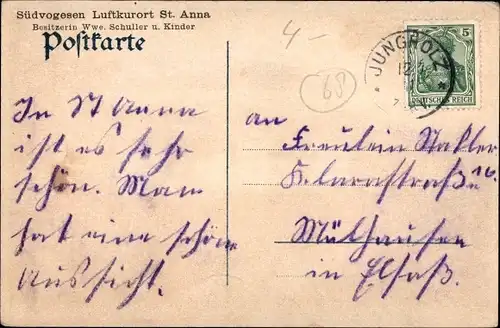 Südvogesen Luftkurort St. Anna
Besitzerin Wwe. Schuller u. Kinder
Postkarte
4 -
68
JUNGHOLZ
5
DEUTSCHES REICH
In St Anna
ist es sehr
schön. Man
hat eine schöne
Aussicht.
an
Fräulein
16.
Mülhausen
in Elsaß.